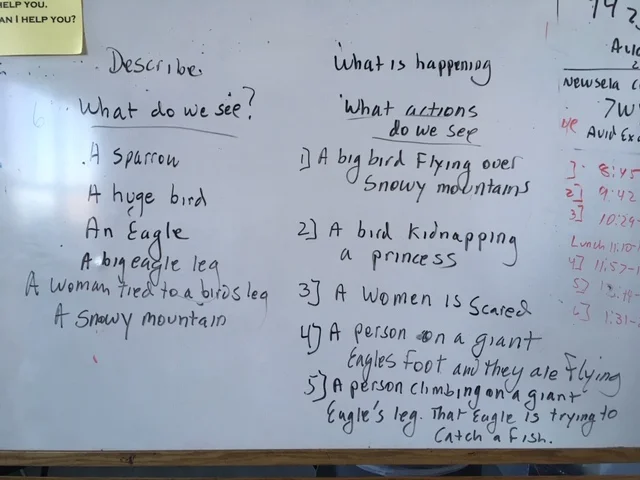 HELP YOU.
AN I HELP YOU?
Describe
What do we see?
A sparrow
A huge bird
An Eagle
A big eagle leg
A woman tied to a birds leg
A snowy mountain
What is happening
What actions
do we see
1] A big bird Flying over
Snowy mountains
2] A bird kidnapping
a princess
3] A Women is Scared
4] A person on a giant
Eagles foot and they are Flying
5] A person climbing on a giant
Eagle's leg. That Eagle is trying to
Catch a fish.
Newsela
7W
Avid
1] 8:45
2] 9:42
3] 10:29-
Lunch 11:10-
4] 11:57-
5]
6] 1:31-